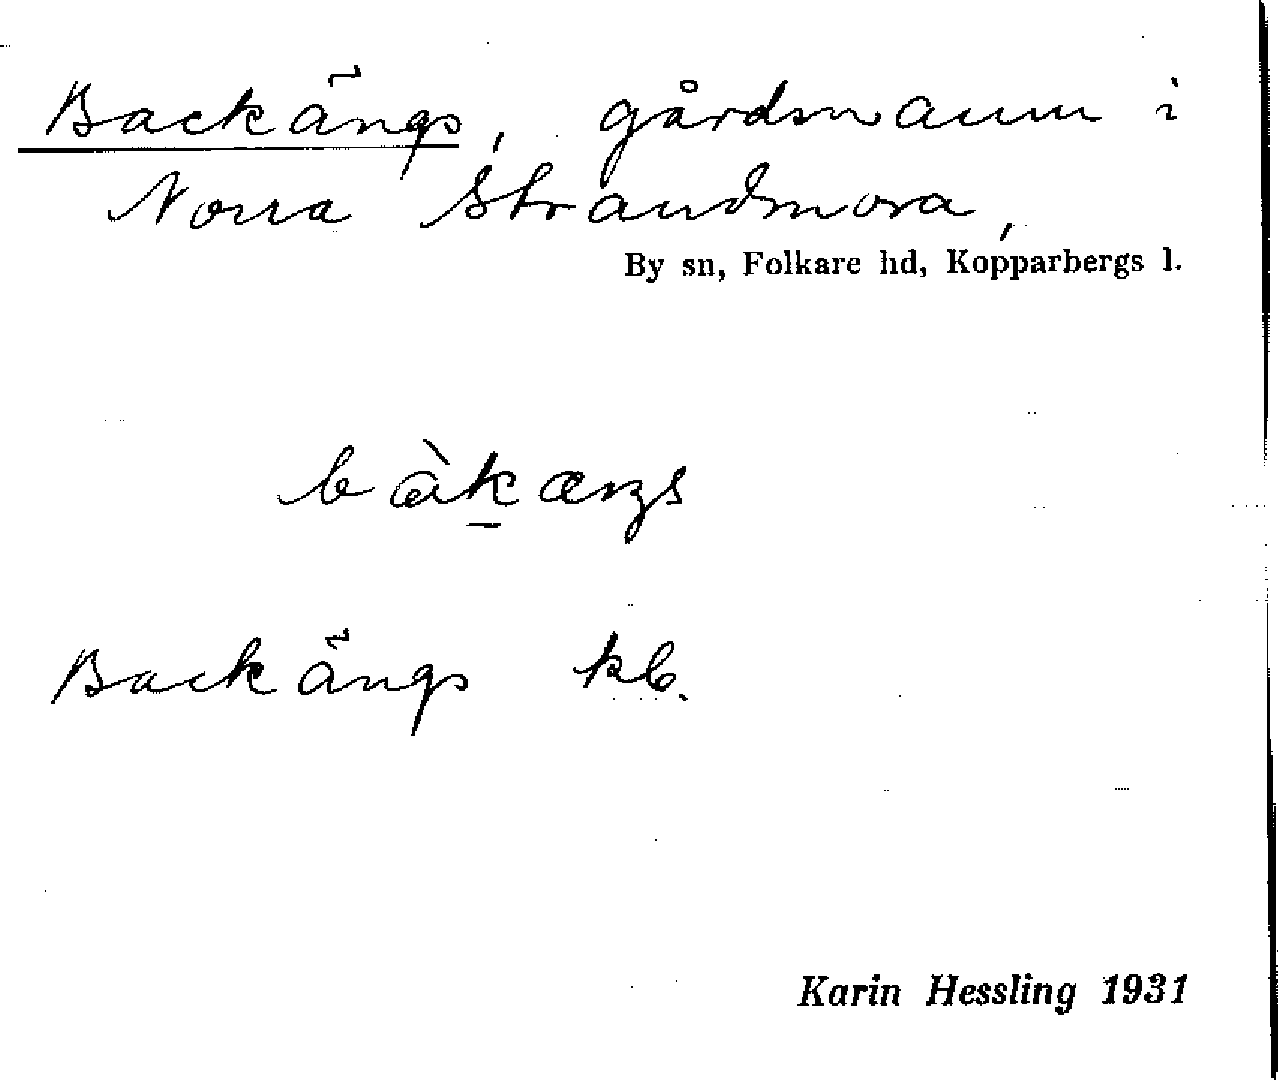 Backängs, gårdsnamn i
Norra Strandmora,
By sn, Folkare hd, Kopparbergs l.
Backängs kb.
Karin Hessling 1931